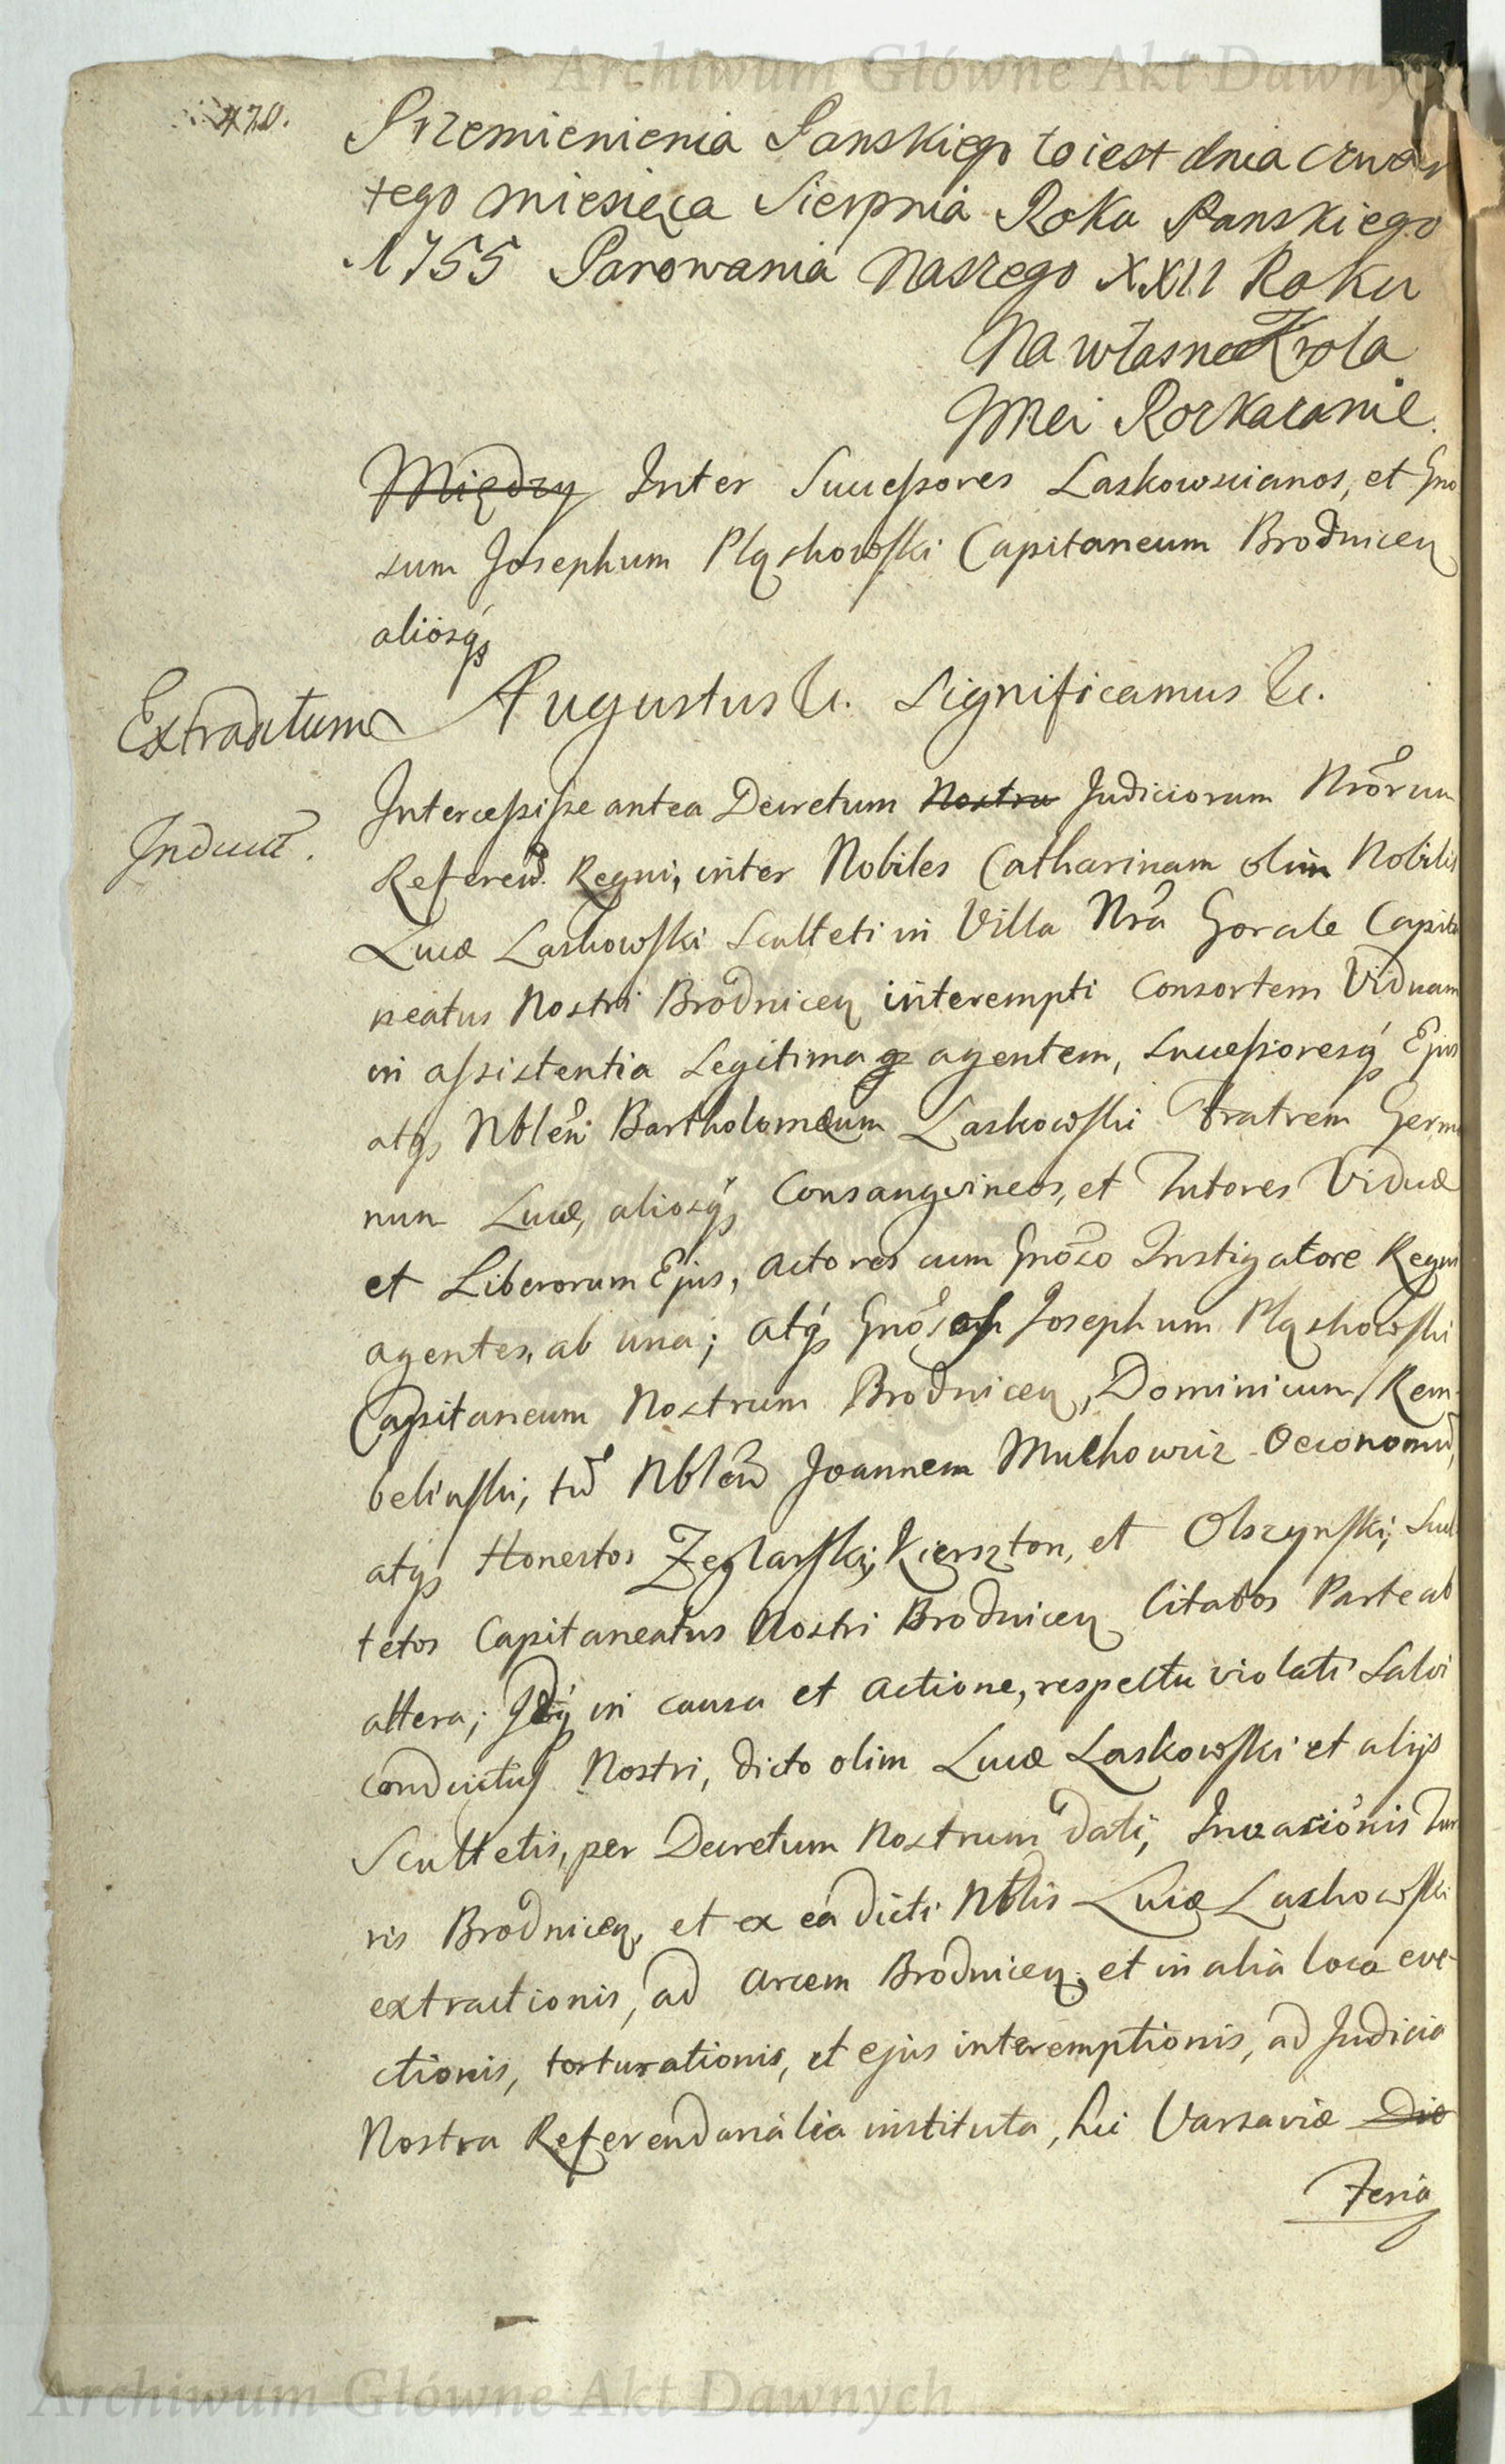 Archiwum Główne Akt Dawnych
470.
Przemienienia Panskiego to iest dnia czwar
tego miesięca Sierpnia Roku Panskiego
1755 Panowania Naszego XXII Roku
Na własne Krola
Jmci Rozkazanie.
Między Inter Successores Laskowscianos, et Gno
sum Josephum Pląskowski Capitaneum Brodnicen
aliosq́
Extraditum
Augustus &c. Significamus &c.
Intercessisse antea Decretum Nostra Judiciorum Nrõrum
Induct.
Referend. Regni, inter Nobiles Catharinam olim Nobilis
Lucæ Laskowski Sculteti in Villa Nrã Gorale Capita
neatus Nostri Brodnicen interempti Consortem Viduam
in assistentia Legitima agentem, Successoresq́ Ejus
atq́ Nblẽm Bartholomæum Laskowski Fratrem Germa
num Lucæ, aliosq́ Consangvineos, et Tutores Viduæ
et Liberorum Ejus, Actores cum Gnõso Instigatore Regni
agentes, ab una; atq́ Gnõs Josephum Pląskowski
Capitaneum Nostrum Brodnicen, Dominicum Rem-
belinski, tũ Nblẽm Joannem Mulhowicz Oeconomũ,
atq́ Honestos Zeglarski, Kierszton, et Olszynski, Scul
tetos Capitaneatus Nostri Brodnicen Citatos Parte ab
altera; Idq́ in causa et Actione, respectu violati Salvi
conductus Nostri, dicto olim Lucæ Laskowski et alijs
Scultetis, per Decretum Nostrum dati, Invasionis Tur
ris Brodnicen, et ex ea dicti Nblis Lucæ Laskowski
extractionis, ad Arcem Brodnicen, et in alia loca eve-
ctionis, torturationis, et ejus interemptionis, ad Judicia
Nostra Referendarialia instituta, hic Varsaviæ Die
Feria
Archiwum Główne Akt Dawnych